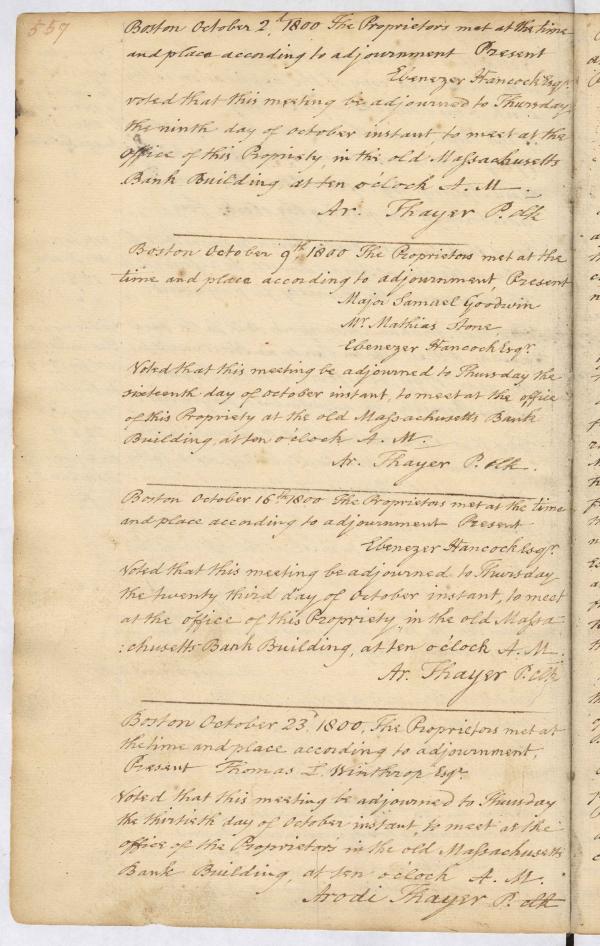 557
Boston October 2d. 1800 The Proprietors met at the time
and place according to adjournment Present
Ebenezer Hancock Esqr.
voted that this meeting be adjourned to Thursday
the ninth day of October instant to meet at the
office of this Propriety, in the old Massachusetts
Bank Building, at ten o'clock A. M.
Ar. Thayer P. Clk
Boston October 9th. 1800 The Proprietors met at the
time and place according to adjournment, Present
Major Samael Goodwin
Mr. Mathias Stone,
Ebenezer Hancock Esqr.
Voted that this meeting be adjourned to Thursday the
sixteenth day of October instant, to meet at the office
of this Propriety at the old Massachusetts Bank
Building, at ten o'clock A. M.
Ar. Thayer P. Clk.
Boston October 16th 1800 The Proprietors met at the time
and place according to adjournment Present
Ebenezer Hancock Esqr.
Voted that this meeting be adjourned to Thursday
the twenty third day of October instant, to meet
at the office of this Propriety, in the old Massa
:chusetts Bank Building, at ten o'clock A. M.
Ar. Thayer P. Clk
Boston October 23d. 1800, The Proprietors met at
the time and place according to adjournment,
Present Thomas L. Winthrop Esqr
Voted that this meeting be adjourned to Thursday
the thirtieth day of October instant, to meet at the
office of the Proprietors in the old Massachusetts
Bank Building, at ten o'clock A. M.
Arodi Thayer P. Clk